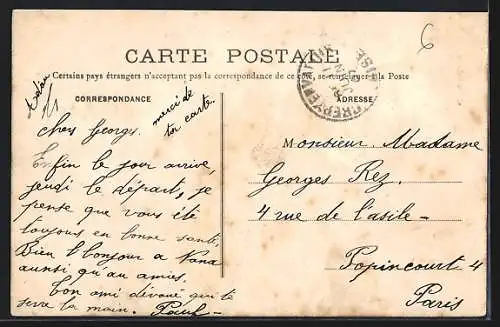 6
CARTE POSTALE
Certains pays étrangers n'acceptent pas la correspondance de ce côté, se renseigner à la Poste
CORRESPONDANCE
11
merci de
ta carte.
cher Georges.
Enfin le jour arrive,
jeudi le départ, je
pense que vous été
toujours en bonne santé,
Bien l'bonjour a Nana
aunsi qu'au amies.
bon ami dévoué qui te
serre la main. Paul
ADRESSE
Monsieur. Madame
Georges Rez.
4 rue de l'asile -
Popincourt 4
Paris